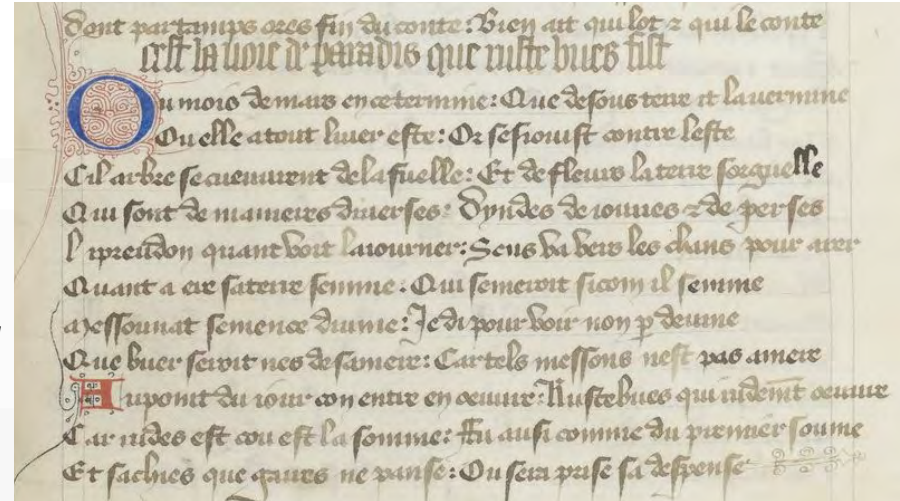 dont par tamps ores fin du conte: Bien ait qui lot ⁊ qui le conte
cest la uoie de paradis que ruste bues fist
Ou mois de mars en ce termine: Que desous terre ist la uermine
Ou elle a tout liuer este: Or sesioinst contre leste
Cil arbre se cueuurent de la fuelle: Et de fleurs la terre sorguelle
Qui sont de manieres diuerses: Dyndes de iounes ⁊ de perses
li preudon quant voit laiourner: Sens va vers les chans pour arer
Quant a ere sa terre semme: Qui semeroit si com il semme
Messounat semence diuine: Je di pour voir non p deuine
Que buer seroit nes de sa mere: Car tels messons nest pas amere
Au point du iour con entre en oeuure: Rustebues qui rudemt oeuure
Car rudes est cou est la somme: Fu ausi comme du premier somme
Et sachies que gaires ne panse: Ou sera prise sa despense